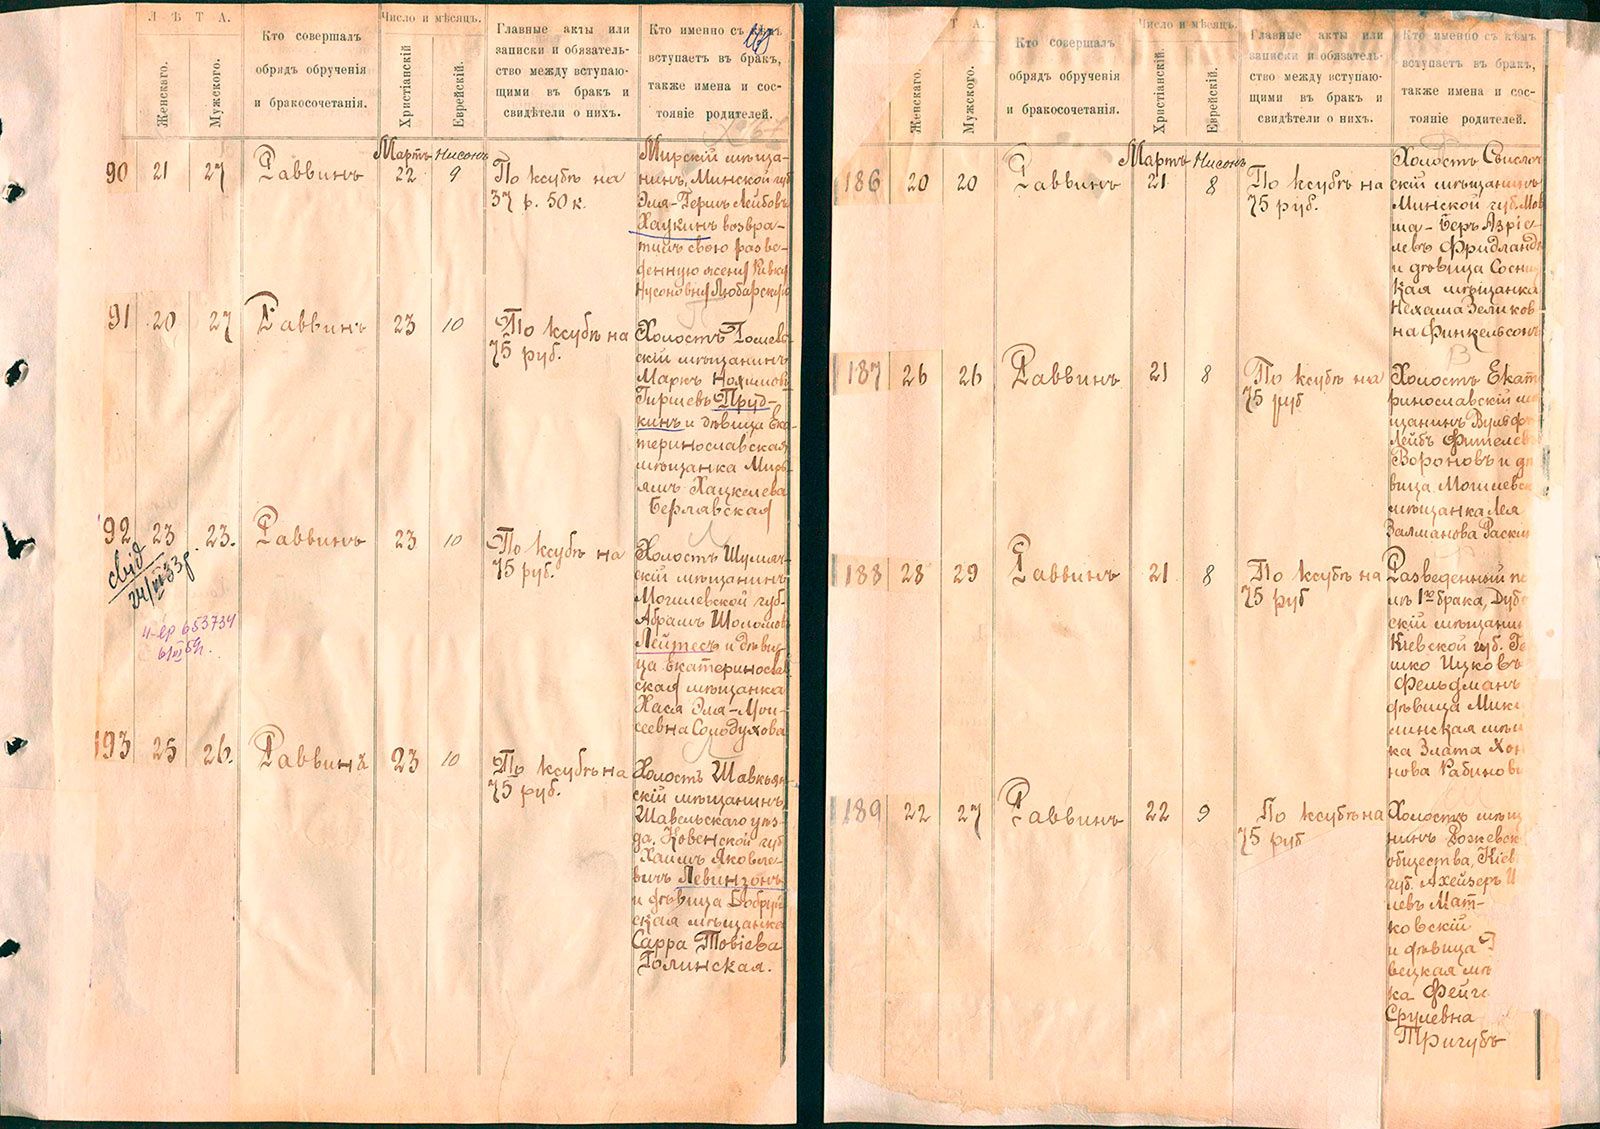 Л Ѣ Т А.
Женскаго.
Мужского.
Кто совершалъ
обрядъ обрученія
и бракосочетанія.
Число и мѣсяцъ.
Христіанскій
Еврейскій.
Главные акты или
записки и обязатель-
ство между вступаю-
щими въ бракъ и
свидѣтели о нихъ.
Кто именно съ кѣмъ
вступаетъ въ бракъ,
также имена и сос-
тояніе родителей.
Мартъ Нисонъ
90 21 27 Раввинъ 22 9
По ксубѣ на
37 р. 50 к.
Мирскій мѣща-
нинъ, Минской губ
Эля-Гершъ Лейбовъ
Хаукинъ возвра-
тилъ свою разве-
денную жену Ривку
Нусоновну Любарскую
91 20 27 Раввинъ 23 10
По ксубѣ на
75 руб.
Холостъ
скій мѣщанинъ
Маркъ
Гиршевъ Пруд-
кинъ и дѣвица Ека-
теринославская
мѣщанка Мирь-
ямъ Хацкелева
Берлавская
92 23 23. Раввинъ 23 10
свид
24/VI 33 г.
653734
По ксубѣ на
75 руб.
Холостъ Шумяч-
скій мѣщанинъ
Могилевской губ.
Абрамъ Шоломов
Лейтесъ и дѣви-
ца Екатеринослав
ская мѣщанка
Хася Эля-Мои-
сеевна Солодухова
193 25 26. Раввинъ 23 10
По ксубѣ на
75 руб.
Холостъ Шавкян-
скій мѣщанинъ,
Шавельскаго уѣз-
да, Ковенской губ
Хаимъ Яковле-
вичъ Левинзонъ
и дѣвица Бобруй
ская мѣщанка
Сарра Товіева
Голинская.
Т А.
Женскаго.
Мужского.
Кто совершалъ
обрядъ обрученія
и бракосочетанія.
Число и мѣсяцъ.
Христіанскій
Еврейскій.
Главные акты или
записки и обязатель-
ство между вступаю-
щими въ бракъ и
свидѣтели о нихъ.
Кто именно съ кѣмъ
вступаетъ въ бракъ,
также имена и сос-
тояніе родителей.
Мартъ Нисонъ
186 20 20 Раввинъ 21 8
По ксубѣ на
75 руб.
Холостъ Свислоч
скій мѣщанинъ
Минской губ. Мов
ша-Беръ Азріе-
левъ Фридландъ
и дѣвица Сосниц
кая мѣщанка
Нехама Зеликов
на Финкельсонъ
187 26 26 Раввинъ 21 8
По ксубѣ на
75 руб
Холостъ Екате
ринославскій мѣ
щанинъ Вульфъ
Лейбъ Фителевъ
Вороновъ и дѣ
вица Могилевск
мѣщанка Лея
Залманова Раскин
188 28 29 Раввинъ 21 8
По ксубѣ на
75 руб
Разведенный по
лѣ 1го брака, Дуб
скій мѣщанин
Кіевской губ. Ге
шко Ицковъ
Фельдманъ
дѣвица Мик
линская мѣщ
ка Злата Хон
нова Рабинови
189 22 27 Раввинъ 22 9
По ксубѣ на
75 руб
Холостъ мѣщ
нинъ Рожевск
общества, Кіев
губ. Ахейзеръ И
левъ Мат-
ковскій
и дѣвица
вецкая мѣ
ка Фейга
Срулевна
Тригубъ